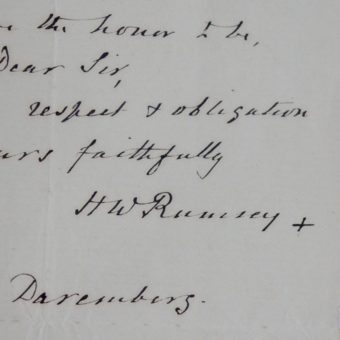 the honor to be,
Dear Sir,
respect & obligation
faithfully
HW Rumsey +
Daremberg.